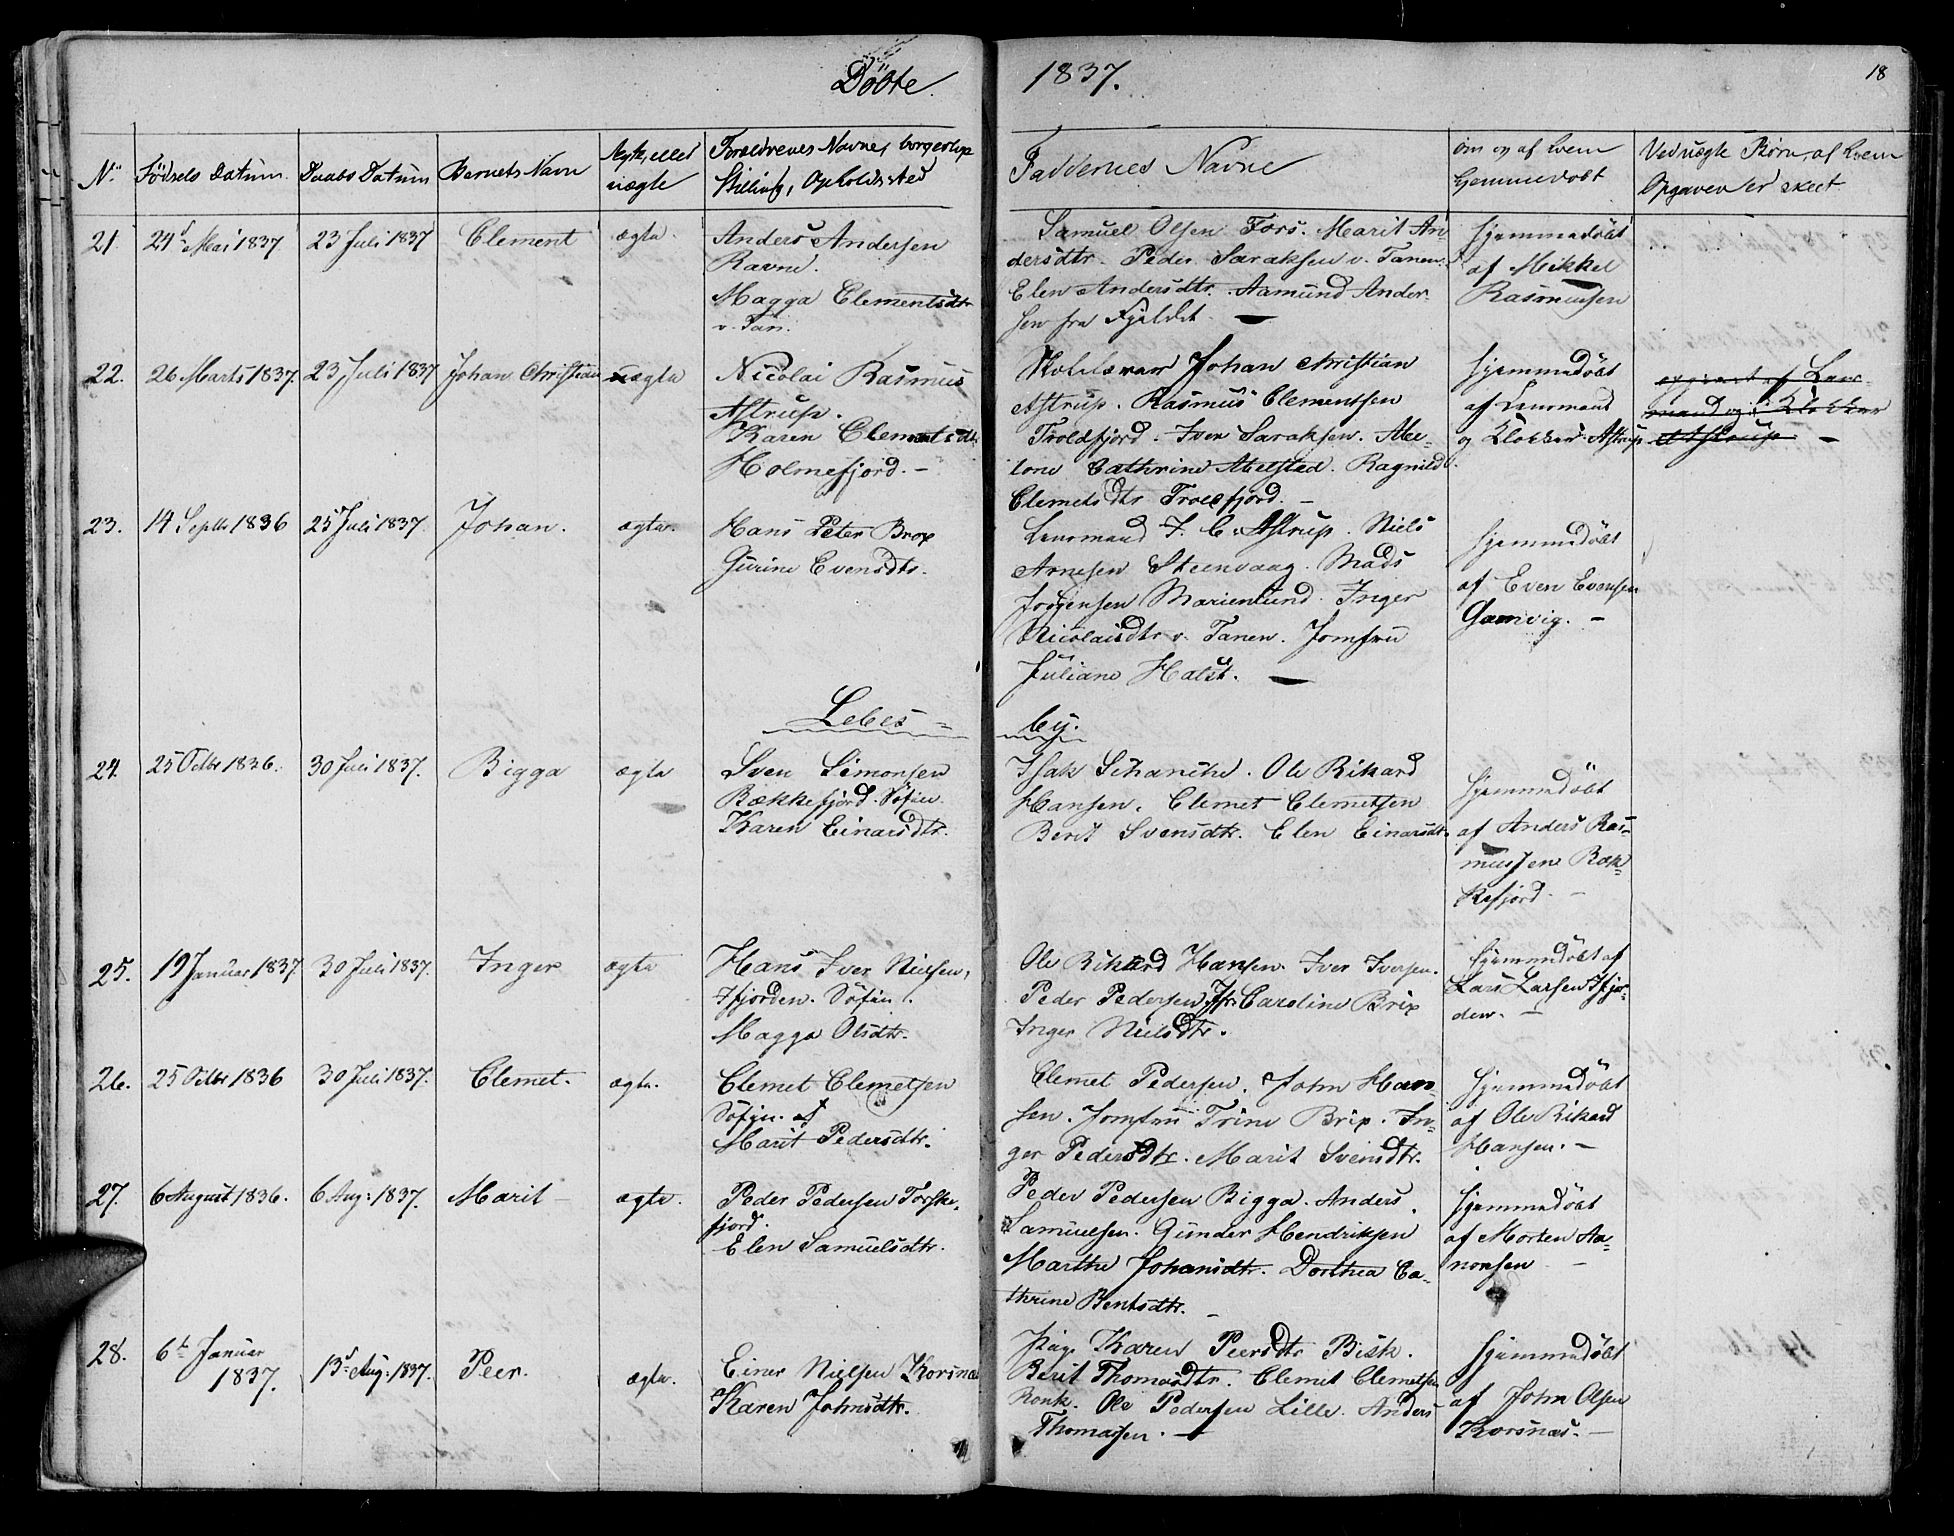 Döbte.
1837.
18
No
Födsels Datum.
Daabs Datum
Barnets Navn
Ægte, eller
uægte
Forældrenes Navne, borgerlige
Stilling, Opholdssted
Faddernes Navne
om og af hvem
hjemmedöbt
Ved uægte Börn, af hvem
Opgaven er skeet
21.
24de Mai 1837
23 Juli 1837
Clement
ægte.
Anders Andersen
Ravne.
Magga Clementsdtr
v. Tan.
Samuel Olsen Fors. Marit An-
dersdtr. Peder Saraksen v. Tanen.
Elen Andersdtr. Aamund Ander-
sen fra Fjeldet.
hjemmedöbt
af Mikkel
Rasmussen
22.
26 Marts 1837.
23 Juli 1837
Johan Christian
uægte
Nicolai Rasmus
Astrup.
Karen Clementsdtr
Holmefjord. -
Skolelærer Johan Christian
Astrup. Rasmus Clementsen
Troldfjord. Iver Saraksen.
Cathrine Abelsted. Ragnild
Clemetsdtr Troldfjord. -
hjemmedöbt
af Lensmand
og Klokker Astrup
opgivet af Lens-
mand og Klokker
Astrup -
23.
14 Septbr 1836
25 Juli 1837.
Johan.
ægte.
Hans Peter Brox
Gurine Evensdtr.
Lensmand J. C. Astrup. Niels
Arnesen Steenvaag. Mads
Jörgensen Marienlund. Inger
Nicolaisdtr v. Tanen. Jomfru
Juliane Holst. -
hjemmedöbt
af Even Evensen
Gamvig. -
Lebes-
by.
24.
25 Octbr 1836.
30 Juli 1837.
Bigga
ægte
Sven Simonsen
Bækkefjord. Söfin.
Karen Einarsdtr.
Isak Schanche. Ole Rikard
Hansen. Clemet Clemetsen
Berit Svensdtr. Elen Einarsdtr.
hjemmedöbt
af Anders Ras-
mussen Bæk-
kefjord. -
25.
19 Januar 1837.
30 Juli 1837.
Inger
ægte
Hans Iver Nielsen,
Ifjorden. Söfin.
Magga Olsdtr.
Ole Rikard Hansen. Iver Iversen.
Peder Pedersen. Jfr. Caroline Brix
Inger Nielsdtr.
hjemmedöbt af
Lars Larsen Ifjor-
den. -
26.
25 Octbr 1836
30 Juli 1837.
Clemet.
ægte.
Clemet Clemetsen
Söfin.
Marit Pedersdtr.
Clemet Pedersen. John Han-
sen. Jomfru Trine Brix. In-
ger Pedersdtr. Marit Svensdtr.
hjemmedöbt
af Ole Rikard
Hansen. -
27.
6 August 1836.
6 Aug: 1837.
Marit
ægte.
Peder Pedersen Torske-
fjord.
Elen Samuelsdtr.
Peder Pedersen Bigga. Anders
Samuelsen. Gunder Hendriksen
Marthe Johansdtr. Dorthea Ca-
thrine Bentsdtr. -
hjemmedöbt
af Morten Aa-
nonsen -
28.
6te Januar
1837.
13de Aug: 1837.
Peer.
ægte.
Einer Nielsen Korsnæs
Karen Johnsdtr.
Pige Karen Peersdtr Bisk.
Berit Thomasdtr. Clemet Clemetsen
Ronk. Ole Pedersen Lille. Anders
Thomassen. -
hjemmedöbt
af John Olsen
Korsnæs. -